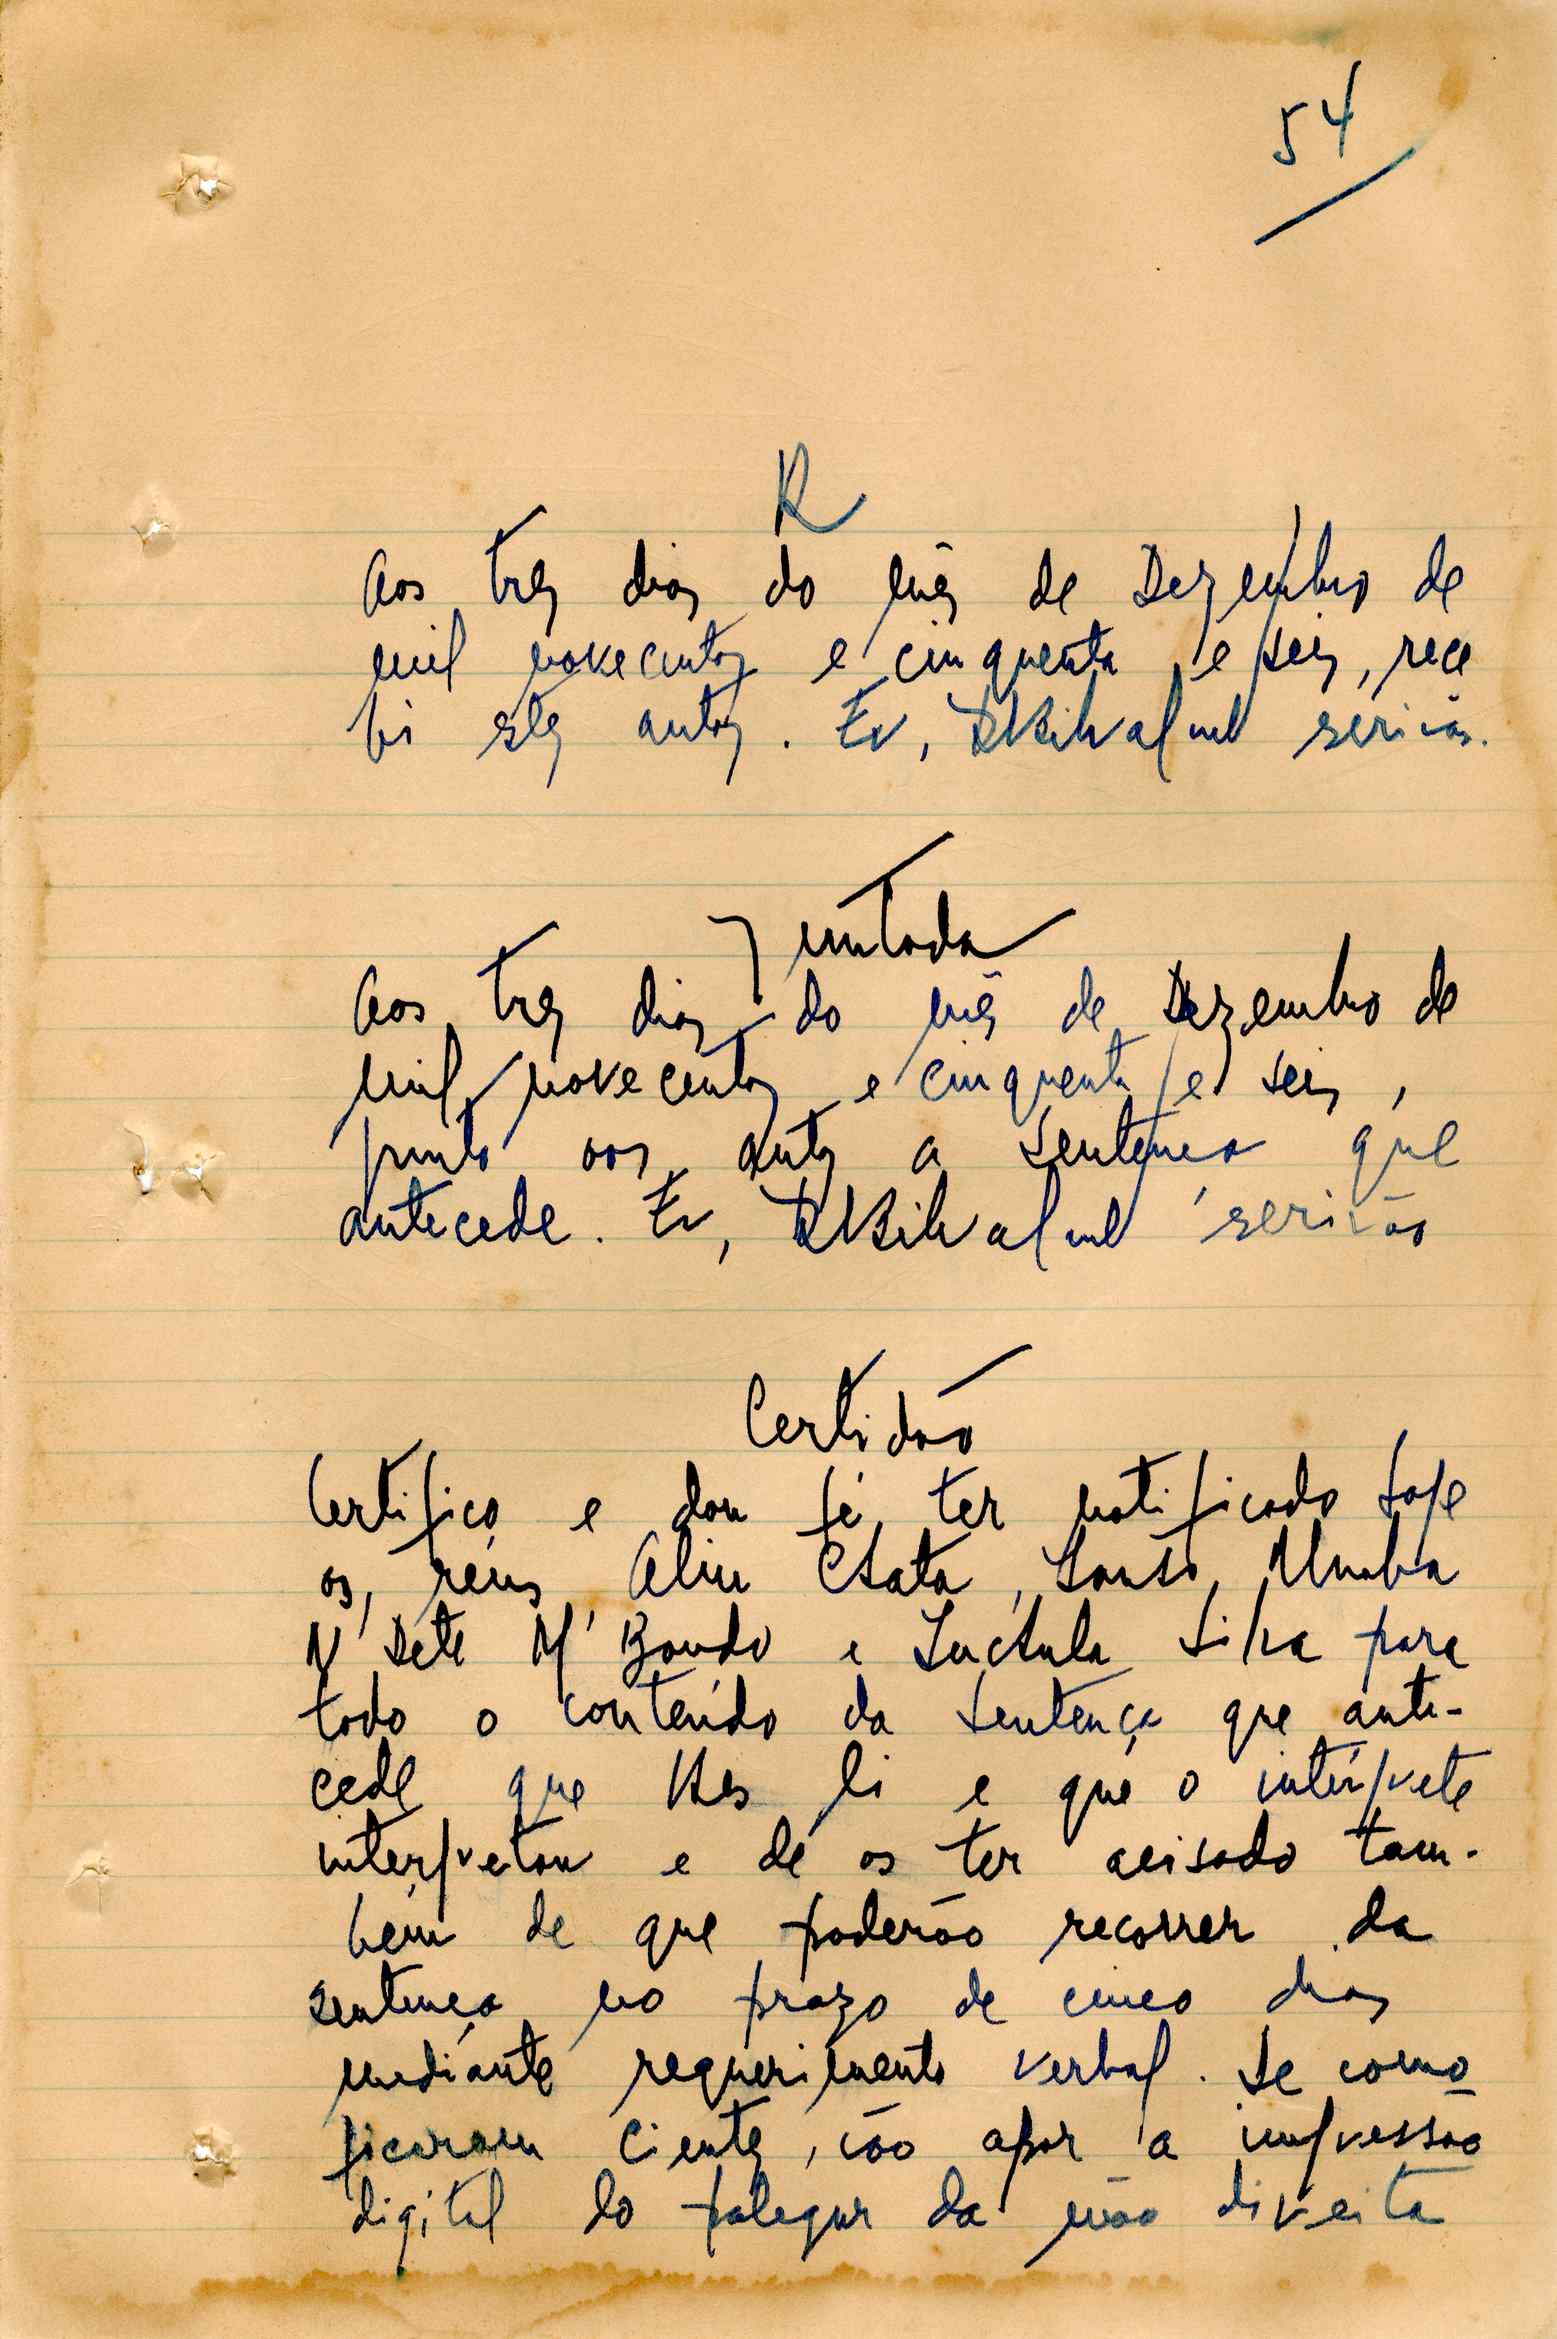 54
R
Aos tres dias do mês de Dezembro de
mil novecentos e cinquenta e seis, rece
bi estes autos. Eu, escrivão.
Juntada
Aos tres dias do mês de Dezembro de
mil novecentos e cinquenta e seis,
junto aos autos a sentença que
antecede. Eu, escrivão
Certidão
Certifico e dou fé ter notificado hoje
os réus Aliu Sanso, Umba
N'Dete M' Bondo e Silva para
todo o conteúdo da sentença que ante-
cede que lhes li e que o intérprete
interpretou e de os ter avisado tam-
bém de que poderão recorrer da
sentença no prazo de cinco dias
mediante requerimento verbal. De como
ficaram cientes, vão apor a impressão
digital do polegar da mão direita